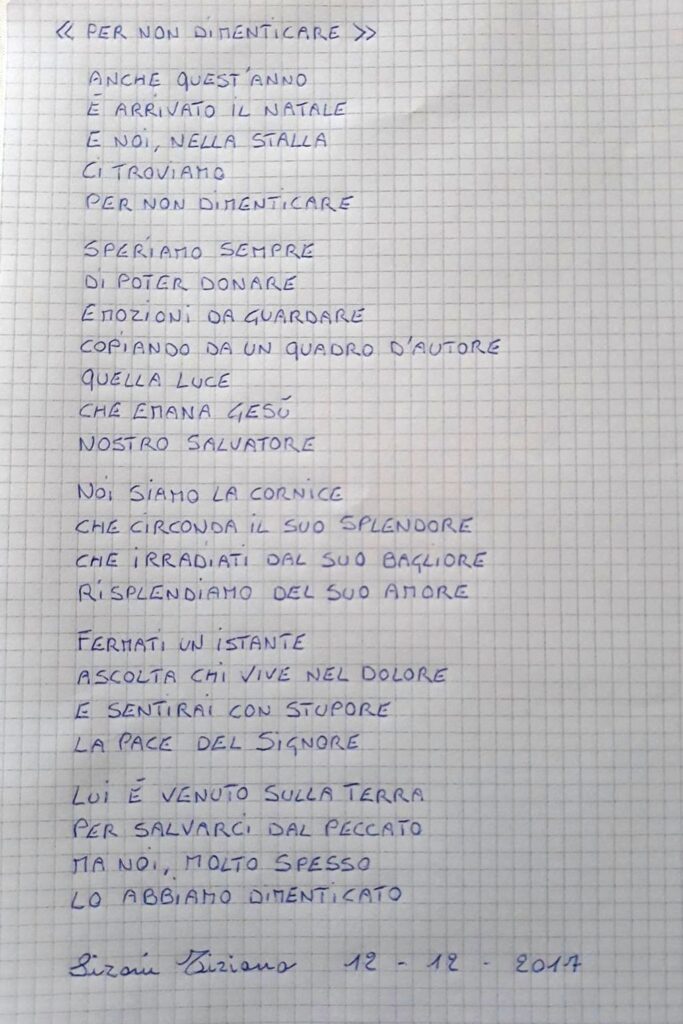 « PER NON DIMENTICARE »
ANCHE QUEST'ANNO
È ARRIVATO IL NATALE
E NOI, NELLA STALLA
CI TROVIAMO
PER NON DIMENTICARE
SPERIAMO SEMPRE
DI POTER DONARE
EMOZIONI DA GUARDARE
COPIANDO DA UN QUADRO D'AUTORE
QUELLA LUCE
CHE EMANA GESÙ
NOSTRO SALVATORE
NOI SIAMO LA CORNICE
CHE CIRCONDA IL SUO SPLENDORE
CHE IRRADIATI DAL SUO BAGLIORE
RISPLENDIAMO DEL SUO AMORE
FERMATI UN ISTANTE
ASCOLTA CHI VIVE NEL DOLORE
E SENTIRAI CON STUPORE
LA PACE DEL SIGNORE
LUI È VENUTO SULLA TERRA
PER SALVARCI DAL PECCATO
MA NOI, MOLTO SPESSO
LO ABBIAMO DIMENTICATO
Tiziano 12 - 12 - 2017